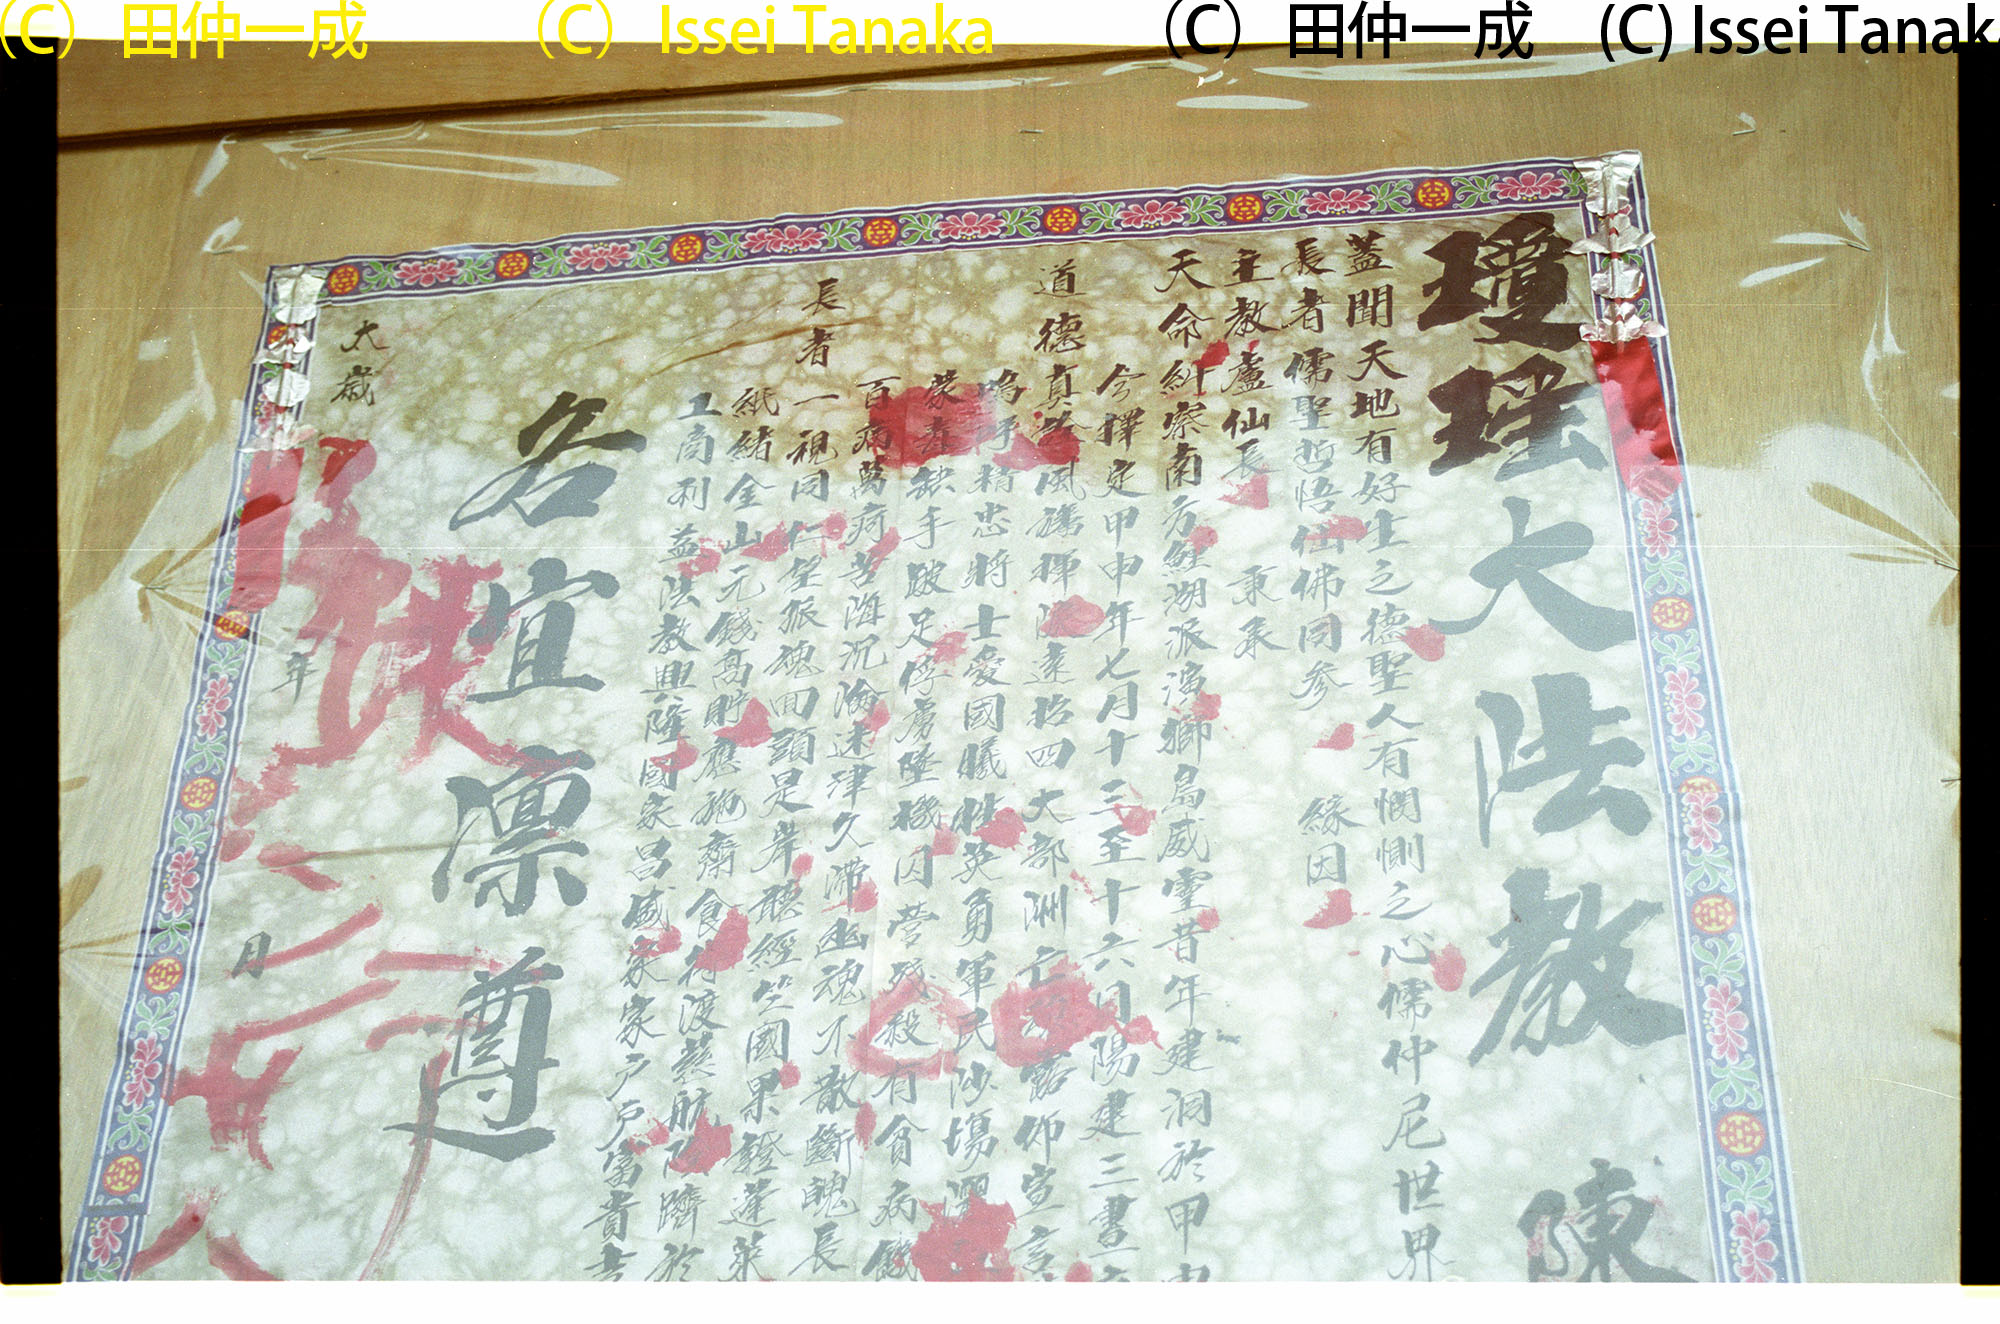 (C) 田仲一成 (C) Issei Tanaka (C) 田仲一成 (C) Issei Tanak
瓊瑤大法教 陳
蓋聞天地有好生之德聖人有憫惻之心儒仲尼世界
長者儒聖哲悟仙佛同參 緣因
主教盧仙長 秉承
天命糾察南方鯉湖派演獅島威靈昔年建洞於甲申
今擇定甲申年七月十三至十六日陽建三晝
道德真 風旛揮 遠招四大部洲亡 露仰宣言
嗚呼精忠將士愛國犧牲英勇軍民沙場
蒙 缺手跛足俘虜墜機囚營殘殺有貧病餓
百病萬疴苦海沉淪迷津久滯幽魂不散斷魄長
長者一視同仁 孤魂回頭是岸聽經 國果證蓬萊
紙緒金山元錢高貯應施齋食符渡慈航 躋於
工商利益法教興隆國家昌盛家家戶戶富貴
名宜凛遵
太歲 年 月